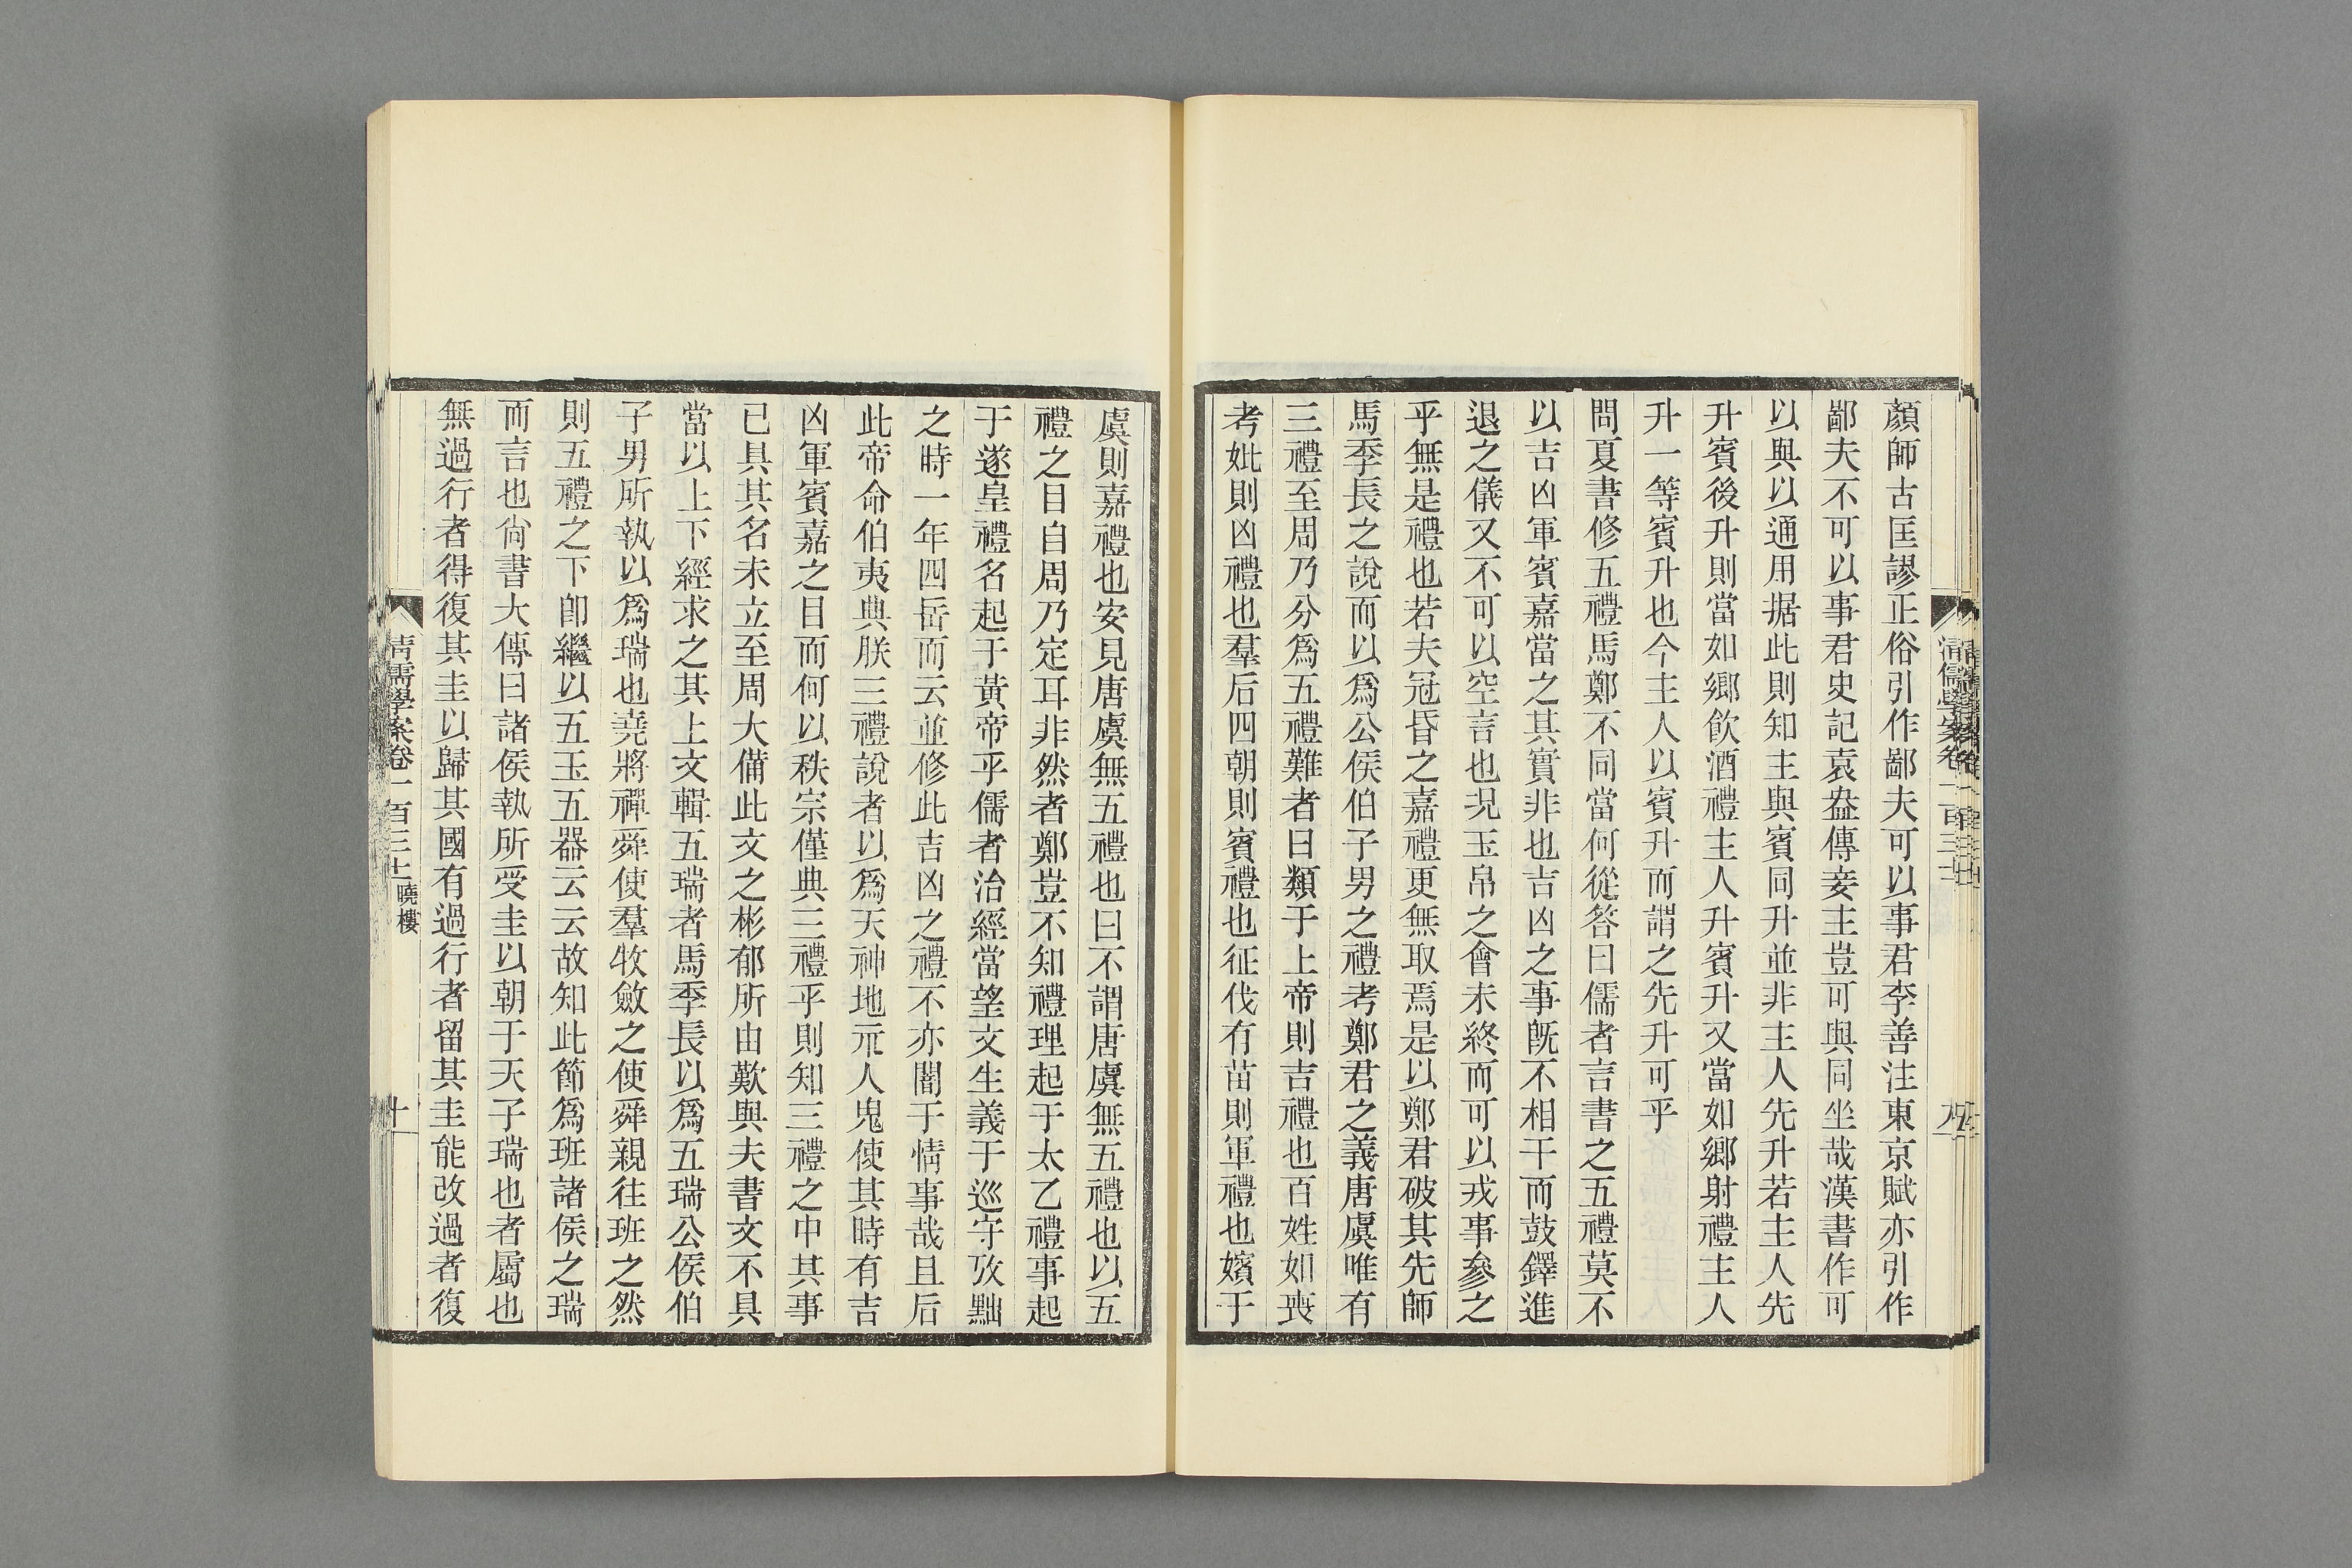 顏師古匡謬正俗引作鄙夫可以事君李善注東京賦亦引作
鄙夫不可以事君史記袁盎傳妾主豈可與同坐哉漢書作可
以與以通用据此則知主與賓同升並非主人先升若主人先
升賓後升則當如鄉飲酒禮主人升賓升又當如鄉射禮主人
升一等賓升也今主人以賓升而謂之先升可乎
問夏書修五禮馬鄭不同當何從答曰儒者言書之五禮莫不
以吉凶軍賓嘉當之其實非也吉凶之事旣不相干而鼓鐸進
退之儀又不可以空言也況玉帛之會未終而可以戎事參之
乎無是禮也若夫冠昏之嘉禮更無取焉是以鄭君破其先師
馬季長之說而以爲公侯伯子男之禮考鄭君之義唐虞唯有
三禮至周乃分爲五禮難者曰類于上帝則吉禮也百姓如喪
考妣則凶禮也羣后四朝則賓禮也征伐有苗則軍禮也嬪于
虞則嘉禮也安見唐虞無五禮也曰不謂唐虞無五禮也以五
禮之目自周乃定耳非然者鄭豈不知禮理起于太乙禮事起
于遂皇禮名起于黃帝乎儒者治經當望文生義于巡守攷黜
之時一年四岳而云並修此吉凶之禮不亦闇于情事哉且后
此帝命伯夷典朕三禮說者以爲天神地示人鬼使其時有吉
凶軍賓嘉之目而何以秩宗僅典三禮乎則知三禮之中其事
已具其名未立至周大備此文之彬郁所由歎與夫書文不具
當以上下經求之其上文輯五瑞者馬季長以爲五瑞公侯伯
子男所執以爲瑞也堯將禪舜使羣牧斂之使舜親往班之然
則五禮之下卽繼以五玉五器云云故知此節爲班諸侯之瑞
而言也尙書大傳曰諸侯執所受圭以朝于天子瑞也者屬也
無過行者得復其圭以歸其國有過行者留其圭能改過者復
清儒學案卷一百三十
曉樓
十